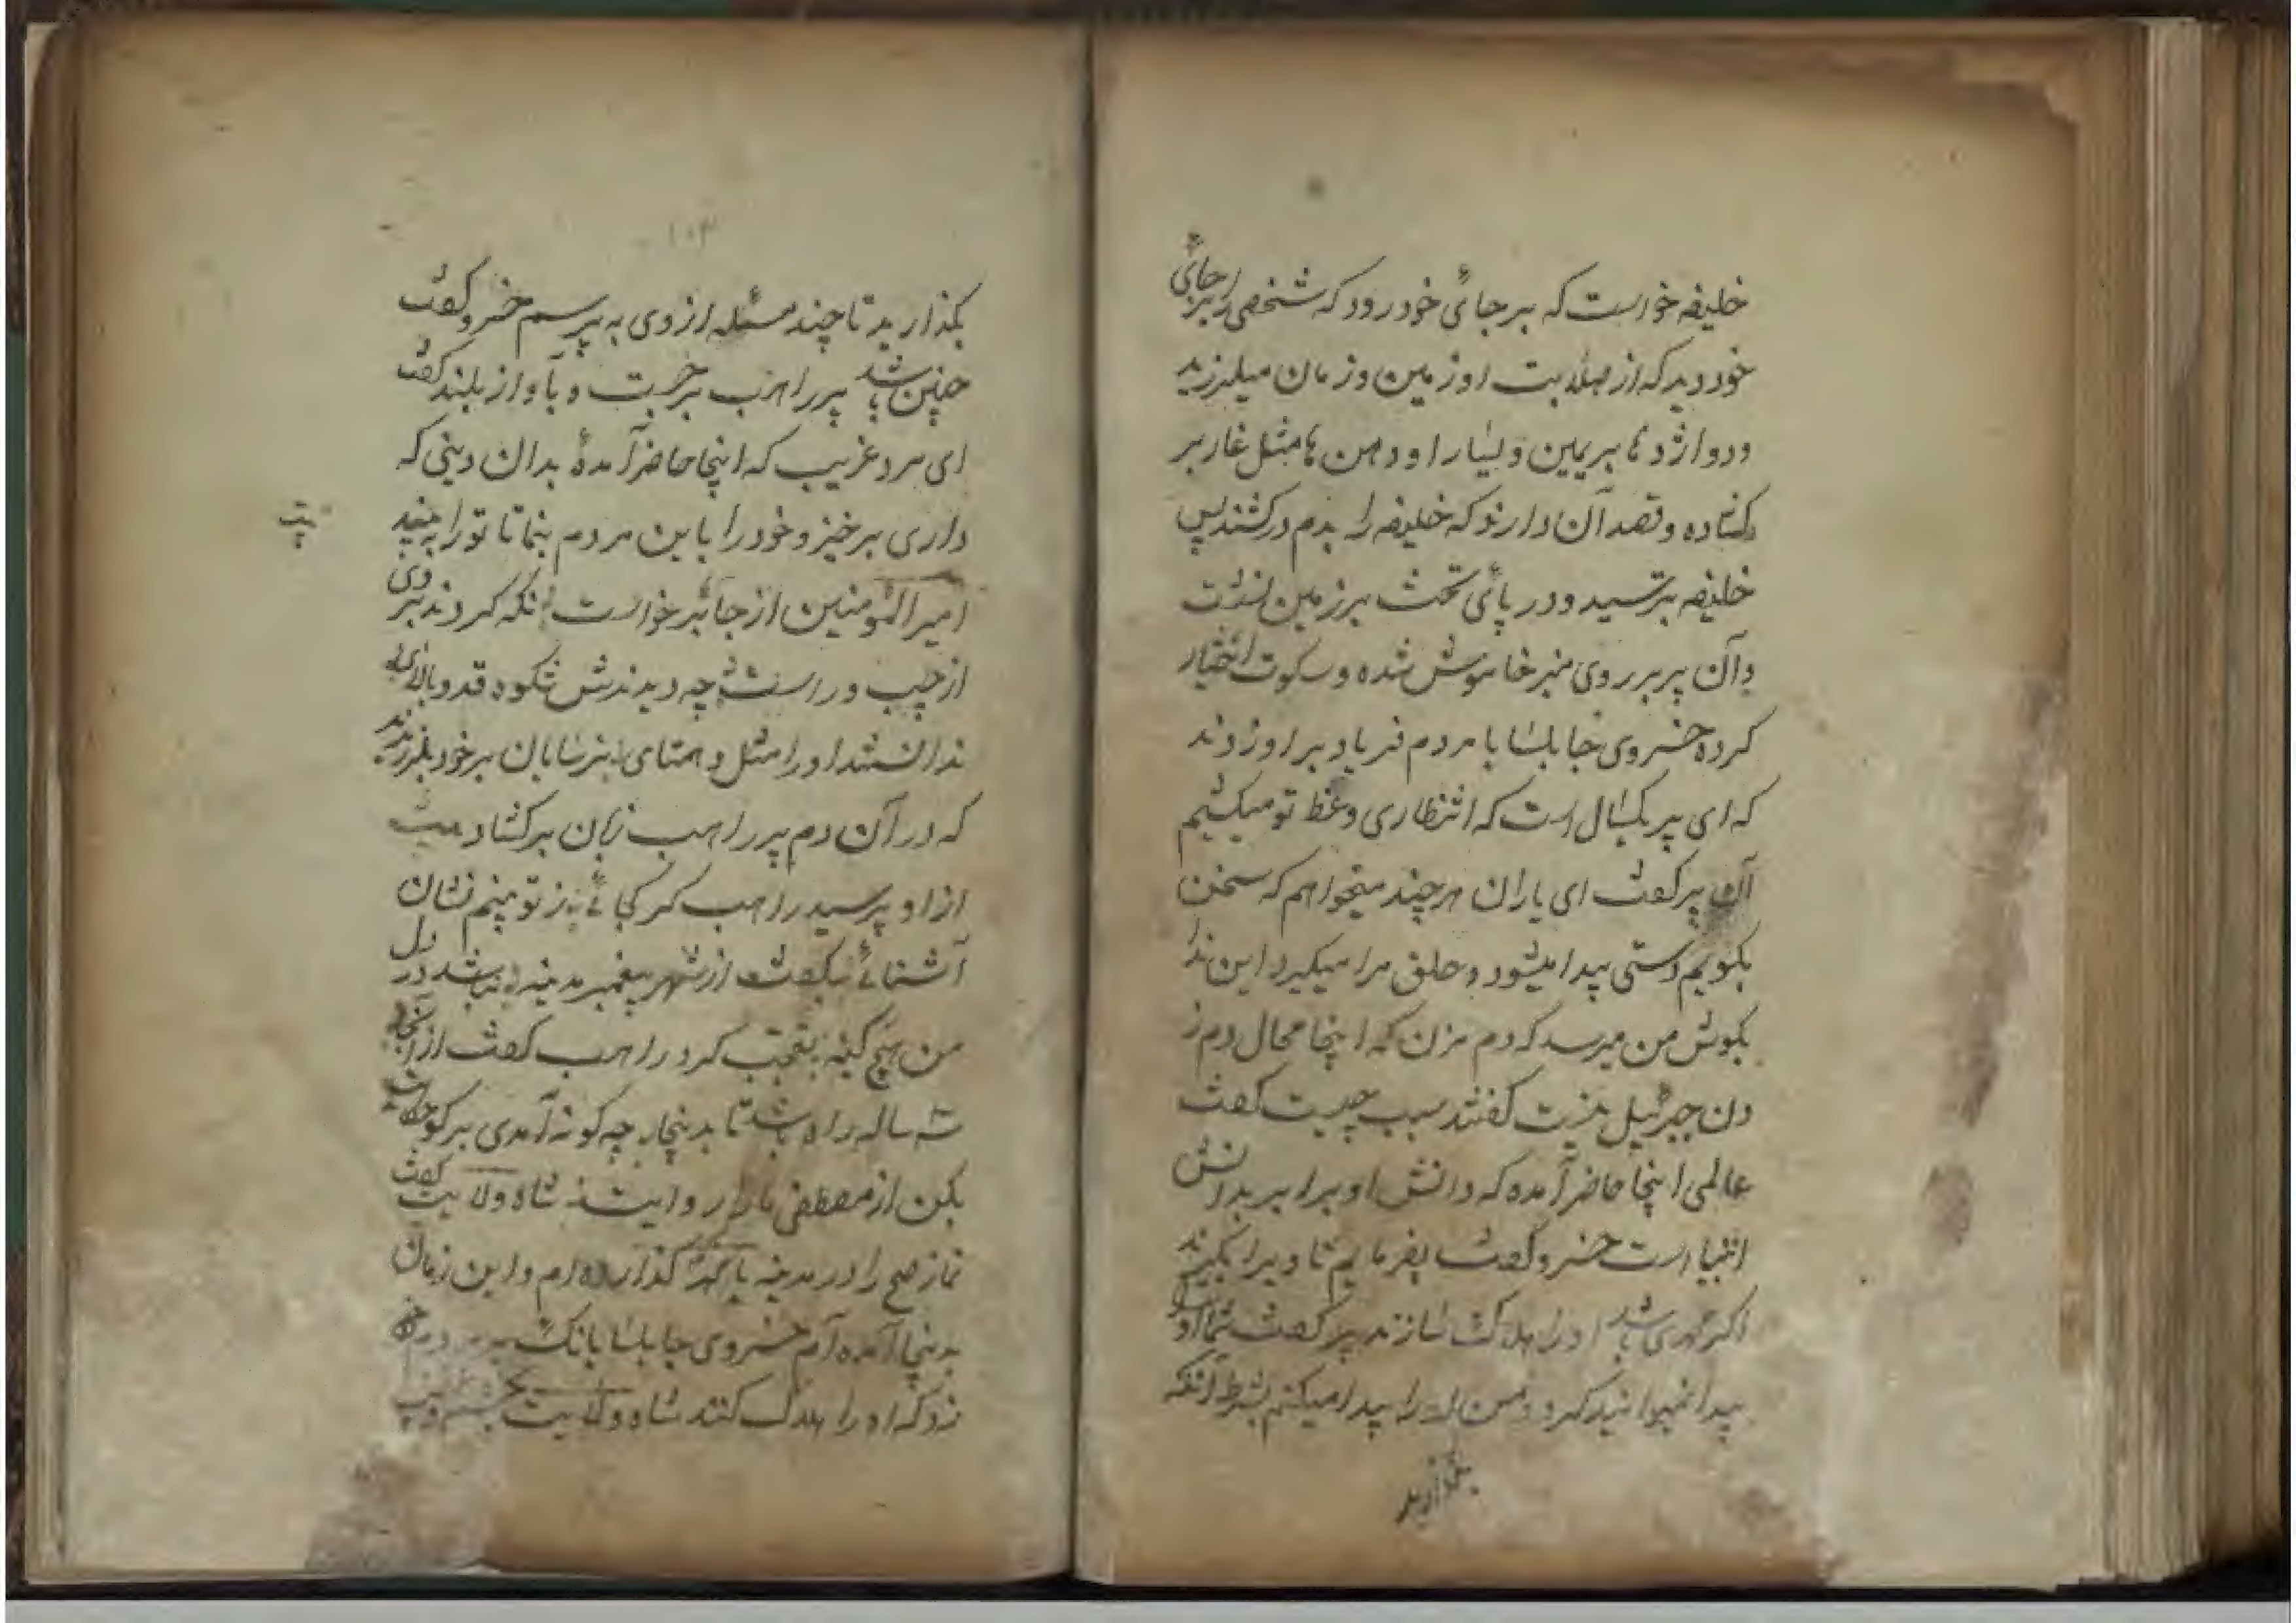 خلیفه خواست که بر جائی خود رود که شخصی را بر جائی
خود دید که از صلابت او زمین و زمان میلرزید
و دو اژدها بر یمین و یسار او دهن ها مثل غار بر
کشاده و قصد آن دارند که خلیفه را بدم در کشند پس
خلیفه بترسید و در پائی تخت بر زمین نشست
و آن پیر بر روی منبر خاموش شده و سکوت اختیار
کرده خسروی جابلسا با مردم فریاد بر او زدند
که ای پیر یکسال است که انتظاری وعظ تو میکشیم
آن پیر گفت ای یاران هر چند میخواهم که سخن
بگویم دستی پیدا میشود و حلق مرا میگیرد این ندا
بگوش من میرسد که دم مزن که اینجا محال دم ز
دن جبرئیل نیست گفتند سبب چیست گفت
عالمی اینجا حاضر آمده که دانش او برابر بدانش
انبیا است خسرو گفت بفرمایم تا ویرا بگیرند
اگر مهدی باشد او را هلاک سازند پیر گفت شما او را
پیدا نمیتوانید کرد و من او را پیدا میکنم بشرط آنکه
بگذارید
۱۰۳
بگذارید تا چند مسئله از وی به پرسم خسرو گفت
چنین باشد پیر راهب برجست و بآواز بلند گفت
ای مرد غریب که اینجا حاضر آمدهٔ بدان دینی که
داری برخیز و خود را باین مردم بنما تا تو را به بینند
بیت
امیر المؤمنین از جائی برخواست نگه کردند بر وی
از چپ و راست چه دیدندش شکوه قد و بالای
ندانستند او را مثل و همتای ترسایان بر خود بلرزیدند
که در آن دم پیر راهب زبان بر کشاد بیت
از او پرسید راهب کز کجائی ز تو بینم نشان
آشنائی بگفت از شهر پیغمبر مدینه نباشد در دل
من هیچ کینه تعجب کرد راهب گفت از آنجا
سه ساله راه باشد تا بدینجا چه گونه آمدی بر گو حکایت
بکن از مصطفی ما را روایت شاه ولایت گفت
نماز صبح را در مدینه با محمد گذارده ام و این زمان
بدینجا آمده ام خسروی جابلسا بانگ بر مردم خود
زد که او را هلاک کنند شاه ولایت بچشم غضب